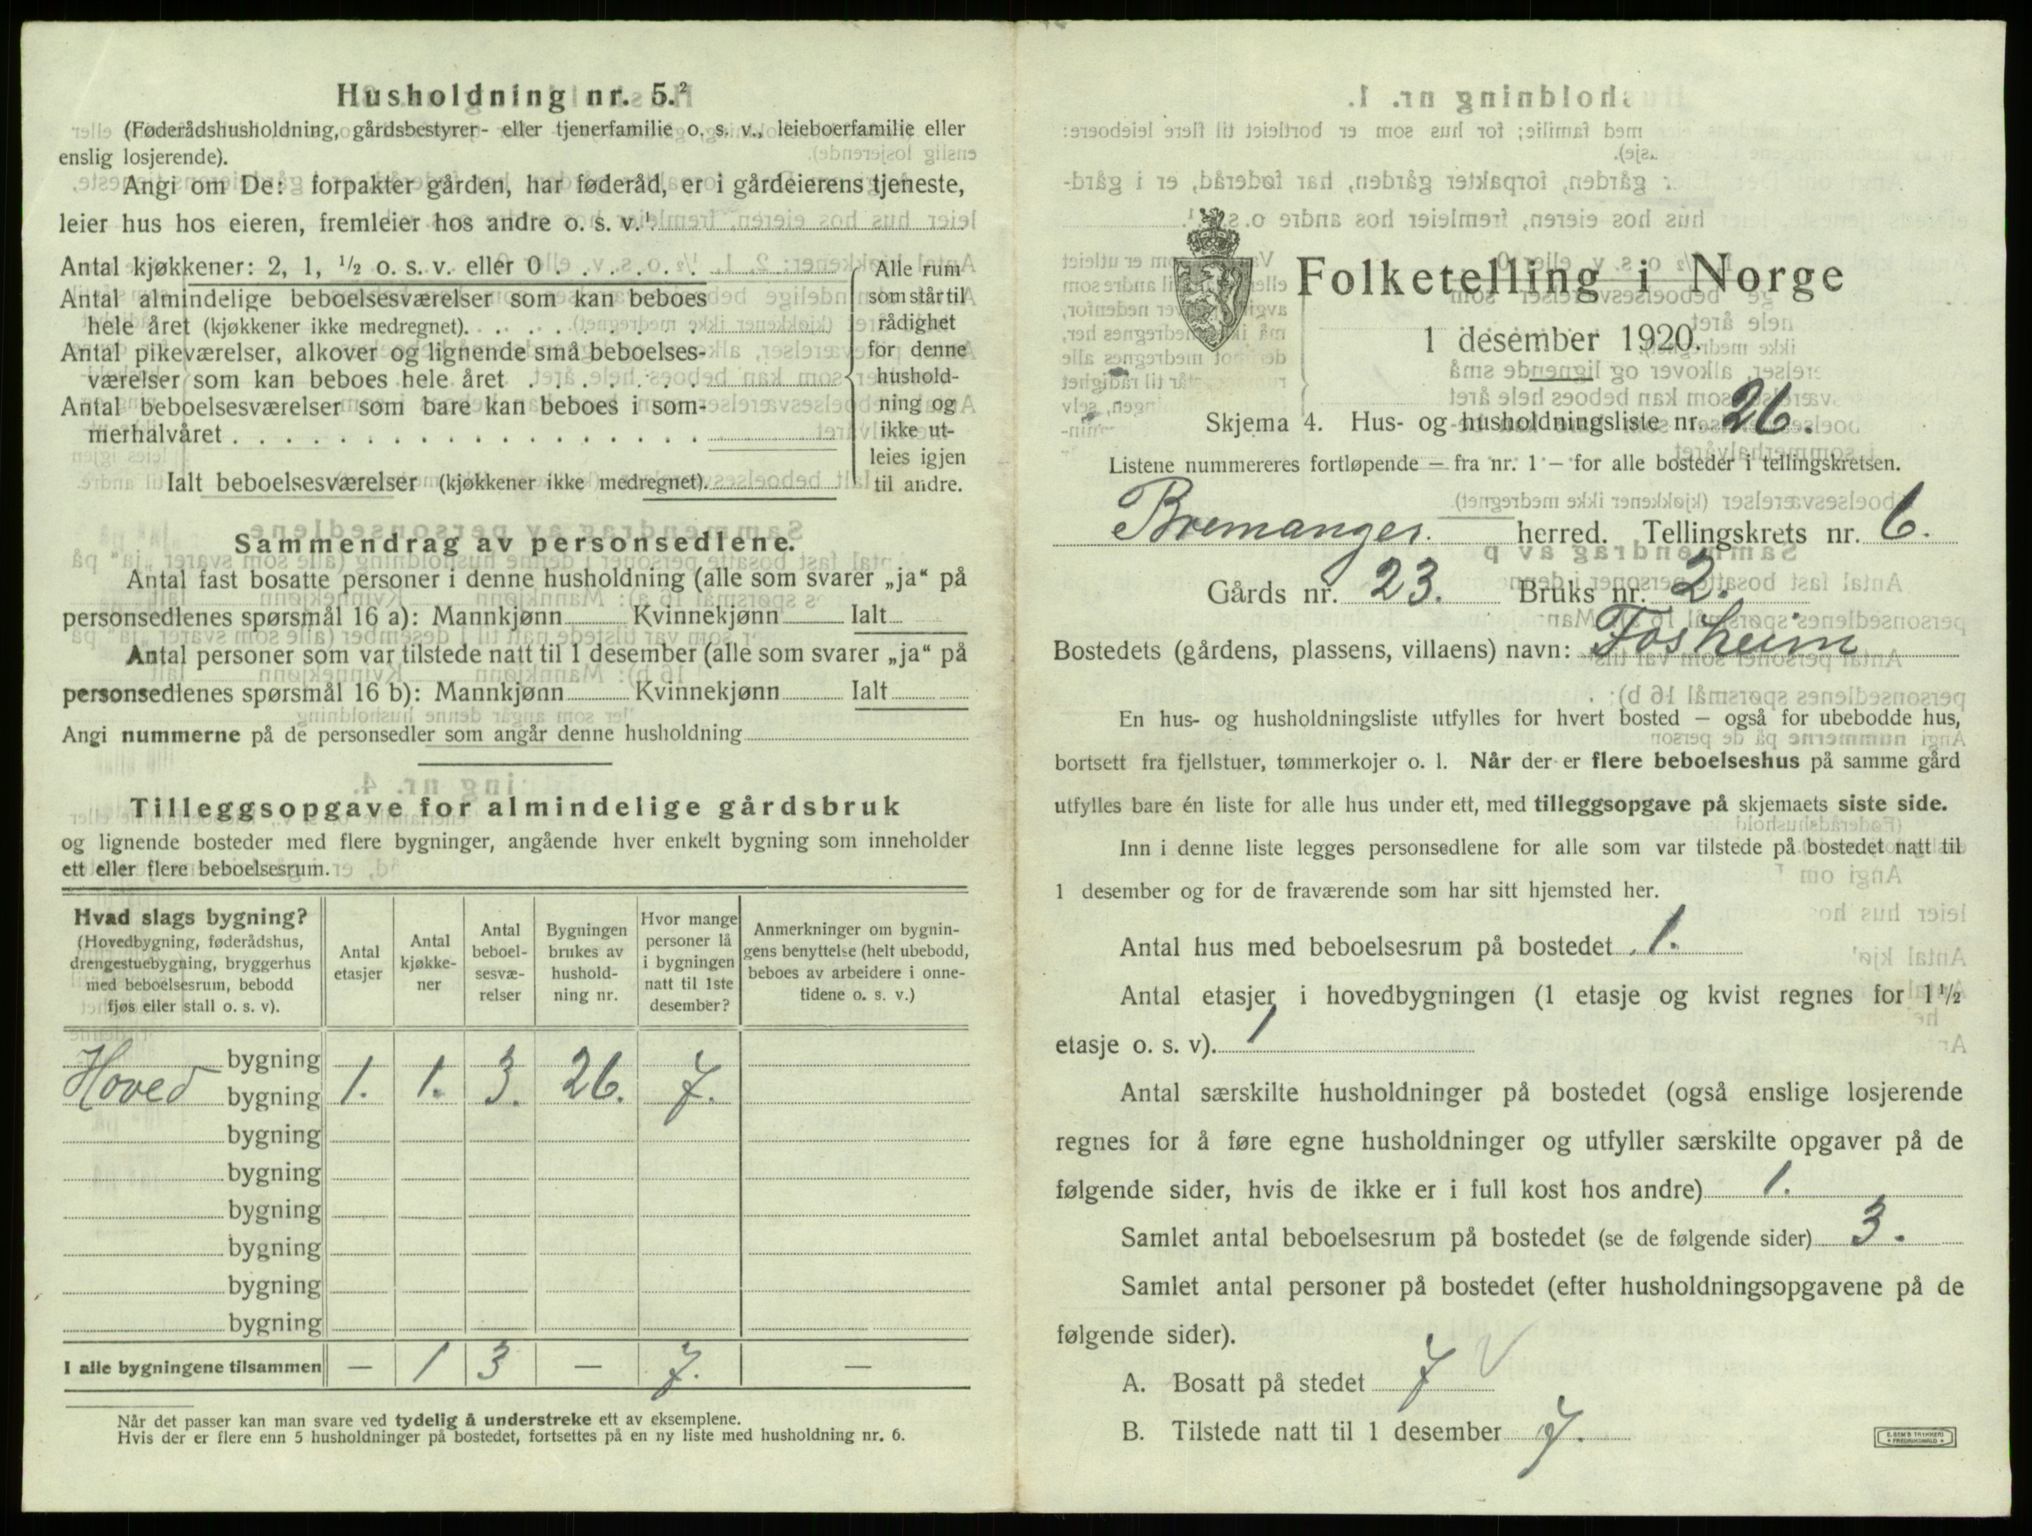 Husholdning nr. 5.²
(Føderådshusholdning, gårdsbestyrer- eller tjenerfamilie o. s. v., leieboerfamilie eller
enslig losjerende).
Angi om De: forpakter gården, har føderåd, er i gårdeierens tjeneste,
leier hus hos eieren, fremleier hos andre o. s. v.¹
Antal kjøkkener: 2, 1, ½ o. s. v. eller 0 . . . . . .
Antal almindelige beboelsesværelser som kan beboes
hele året (kjøkkener ikke medregnet). . . . . . . . .
Antal pikeværelser, alkover og lignende små beboelses-
værelser som kan beboes hele året . . . . . . .
Antal beboelsesværelser som bare kan beboes i som-
merhalvåret . . . . . . . . . . . . . . . . . .
Ialt beboelsesværelser (kjøkkener ikke medregnet).
Alle rum
som står til
rådighet
for denne
hushold-
ning og
ikke ut-
leies igjen
til andre.
Sammendrag av personsedlene.
Antal fast bosatte personer i denne husholdning (alle som svarer „ja“ på
personsedlenes spørsmål 16 a): Mannkjønn Kvinnekjønn Ialt
Antal personer som var tilstede natt til 1 desember (alle som svarer „ja“ på
personsedlenes spørsmål 16 b): Mannkjønn Kvinnekjønn Ialt
Angi nummerne på de personsedler som angår denne husholdning
Tilleggsopgave for almindelige gårdsbruk
og lignende bosteder med flere bygninger, angående hver enkelt bygning som inneholder
ett eller flere beboelsesrum.
Hvad slags bygning?
(Hovedbygning, føderådshus,
drengestuebygning, bryggerhus
med beboelsesrum, bebodd
fjøs eller stall o. s. v).
Antal
etasjer
Antal
kjøkke-
ner
Antal
beboel-
sesvæ-
relser
Bygningen
brukes av
hushold-
ning nr.
Hvor mange
personer lå
i bygningen
natt til 1ste
desember?
Anmerkninger om bygnin-
gens benyttelse (helt ubebodd,
beboes av arbeidere i onne-
tidene o. s. v.)
bygning
Hoved bygning 1. 1. 3. 26. 7.
bygning
bygning
bygning
bygning
bygning
bygning
I alle bygningene tilsammen — 1 3 — 7. —
Når det passer kan man svare ved tydelig å understreke ett av eksemplene.
Hvis der er flere enn 5 husholdninger på bostedet, fortsettes på en ny liste med husholdning nr. 6.
Folketelling i Norge
1 desember 1920.
Skjema 4. Hus- og husholdningsliste nr. 26.
Listene nummereres fortløpende — fra nr. 1 — for alle bosteder i tellingskretsen.
Bremanger. herred. Tellingskrets nr. 6.
Gårds nr. 23. Bruks nr. 2.
Bostedets (gårdens, plassens, villaens) navn: Fosheim
En hus- og husholdningsliste utfylles for hvert bosted — også for ubebodde hus,
bortsett fra fjellstuer, tømmerkojer o. l. Når der er flere beboelseshus på samme gård
utfylles bare én liste for alle hus under ett, med tilleggsopgave på skjemaets siste side.
Inn i denne liste legges personsedlene for alle som var tilstede på bostedet natt til
1 desember og for de fraværende som har sitt hjemsted her.
Antal hus med beboelsesrum på bostedet 1.
Antal etasjer i hovedbygningen (1 etasje og kvist regnes for 1½
etasje o. s. v). 1
Antal særskilte husholdninger på bostedet (også enslige losjerende
regnes for å føre egne husholdninger og utfyller særskilte opgaver på de
følgende sider, hvis de ikke er i full kost hos andre) 1.
Samlet antal beboelsesrum på bostedet (se de følgende sider) 3.
Samlet antal personer på bostedet (efter husholdningsopgavene på de
følgende sider).
A. Bosatt på stedet 7 V
B. Tilstede natt til 1 desember 7.